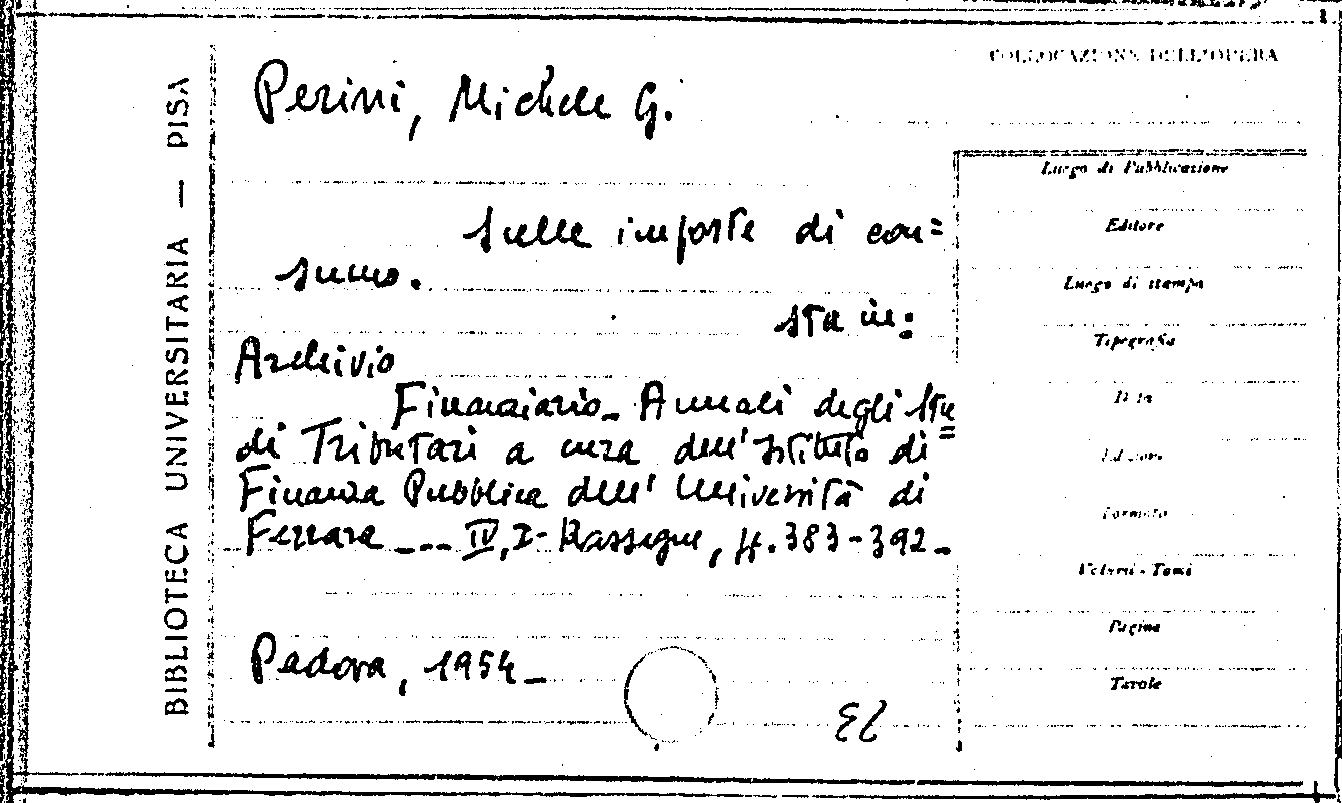 COLLOCAZIONE DELL'OPERA
BIBLIOTECA UNIVERSITARIA — PISA
Perini, Michele G.
Sulle imposte di con=
sumo.
sta in:
Archivio
Finanziario_ Annali degli Stu
=
di Tributari a cura dell'Istituto di
Finanza Pubblica dell'Università di
Ferrara _-- IV, I- Rassegne, pp. 383-392_
Padova, 1954_
Luogo di Pubblicazione
Editore
Luogo di stampa
Tipografia
Data
Edizione
Formato
Volumi - Tomi
Pagine
Tavole